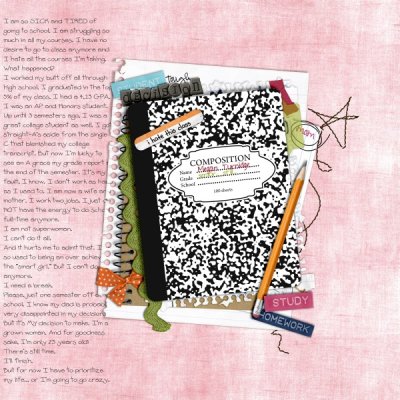 I am so SICK and TIRED of
going to school. I am struggling so
much in all my courses. I have no
desire to go to class anymore and
I hate all the courses I'm taking.
What happened?
I worked my butt off all through
high school. I graduated in the top
5% of my class. I had a 4.13 GPA.
I was an AP and Honors student.
Up until 3 semesters ago, I was a
great college student as well. I got
straight-A's aside from the single
C that blemished my college
transcript. But now I'm lucky to
see an A grace my grade report at
the end of the semester. It's my
fault, I know. I don't work as hard
as I used to. I am now a wife and
mother. I work two jobs. I just do
NOT have the energy to do school
full-time anymore.
I am not superwoman.
I can't do it all.
And it hurts me to admit that. I am
so used to being an over achiever,
the "smart girl." But I can't do it
anymore.
I need a break.
Please, just one semester off from
school. I know my dad is probably
very disappointed in my decision,
but it's MY decision to make. I'm a
grown women. And for goodness
sake, I'm only 23 years old!
There's still time.
I'll finish.
But for now I have to prioritize
my life... or I'm going to go crazy.
STUDENT
tough
decision
I hate this class
COMPOSITION
Name Megan Turnidge
Grade
School
100 sheets
STUDY
HOMEWORK